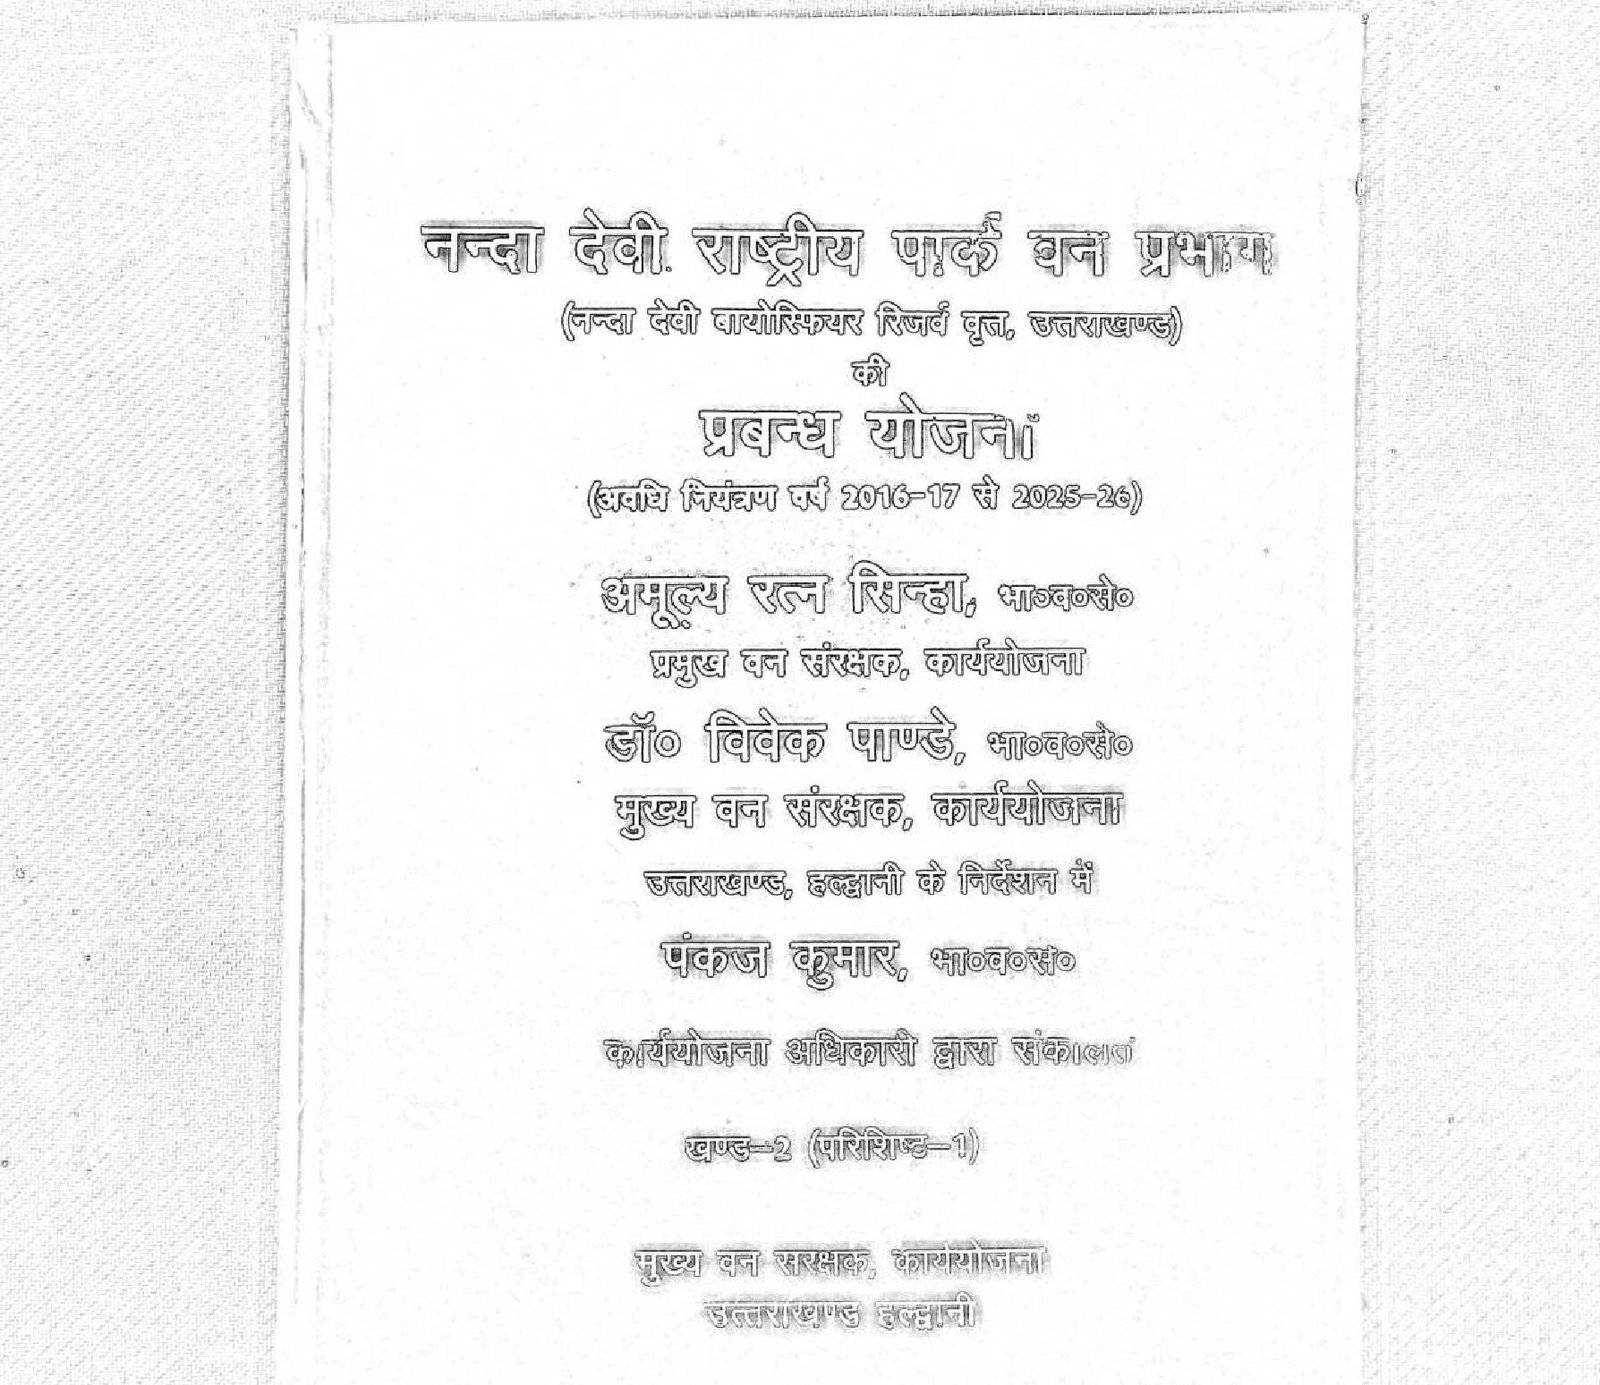 नन्दा देवी राष्ट्रीय पार्क वन प्रभाग
(नन्दा देवी बायोस्फियर रिजर्व वृत्त, उत्तराखण्ड)
की
प्रबन्ध योजना
(अवधि नियंत्रण वर्ष 2016-17 से 2025-26)
अमूल्य रत्न सिन्हा, भा०व०से०
प्रमुख वन संरक्षक, कार्ययोजना
डॉ० विवेक पाण्डे, भा०व०से०
मुख्य वन संरक्षक, कार्ययोजना
उत्तराखण्ड, हल्द्वानी के निर्देशन में
पंकज कुमार, भा०व०से०
कार्ययोजना अधिकारी द्वारा संकलित
खण्ड-2 (परिशिष्ट-1)
मुख्य वन संरक्षक, कार्ययोजना
उत्तराखण्ड हल्द्वानी